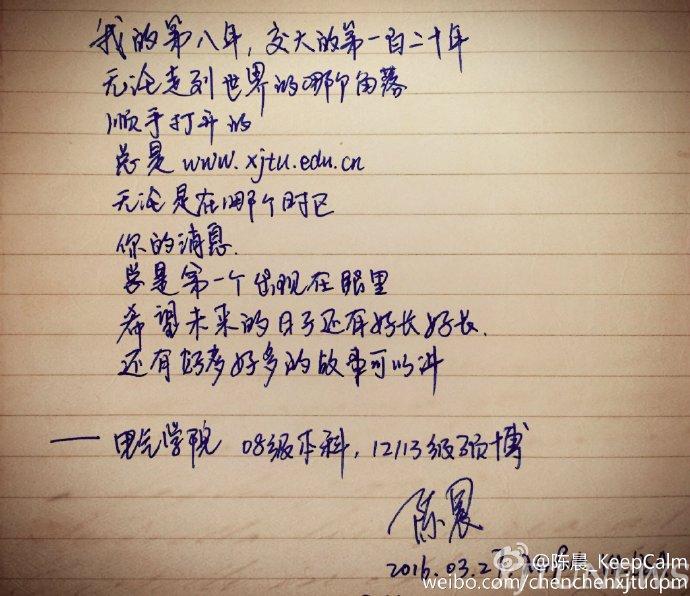 我的第八年，交大的第一百二十年
无论走到世界的哪个角落
顺手打开的
总是 www.xjtu.edu.cn
无论是在哪个时区
你的消息
总是第一个出现在眼里
希望未来的日子还有好长好长
还有好多好多的故事可以讲
—— 电气学院 08级本科，12/13级硕博
陈晨
2016.03.27
@陈晨_KeepCalm
weibo.com/chenchenxjtucpm